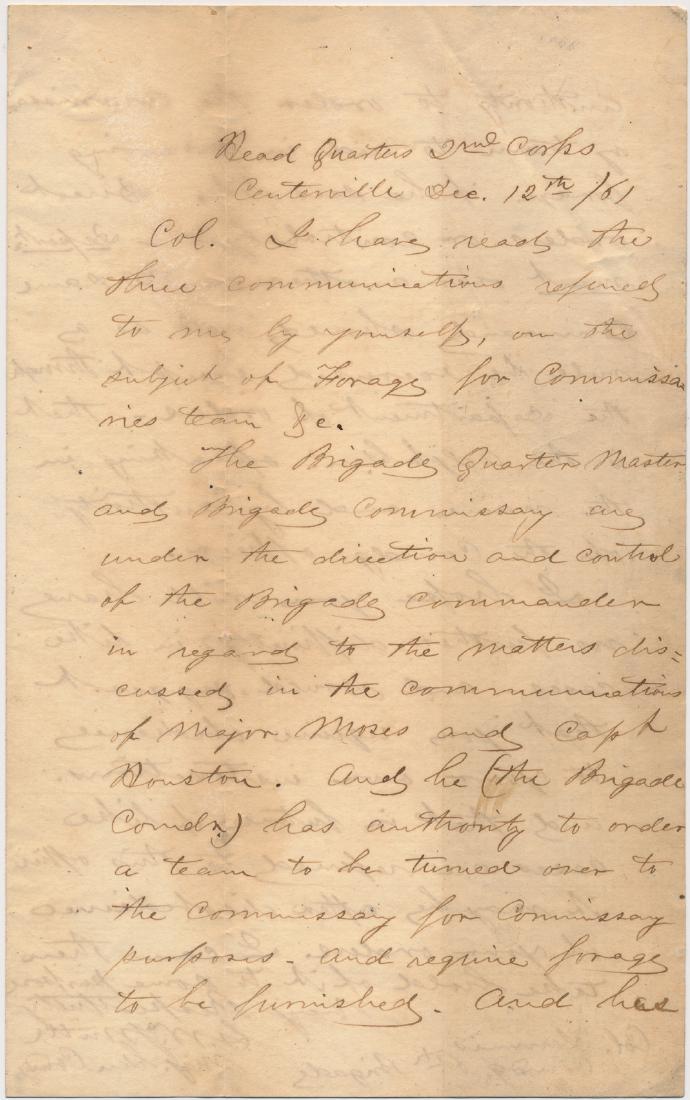 Head Quarters 2nd Corps
Centerville Dec. 12th /61
Col. I have read the
three communications refered
to me by yourself, on the
subject of Forage for Commissa
ries team &c.
The Brigade Quarter Master
and Brigade Commissary are
under the direction and control
of the Brigade Commander
in regard to the matters dis=
cussed in the communications
of Major Moses and Capt
Houston. And he (the Brigade
Comdr.) has authority to order
a team to be turned over to
the Commissary for Commissary
purposes - and require forage
to be furnished. And has